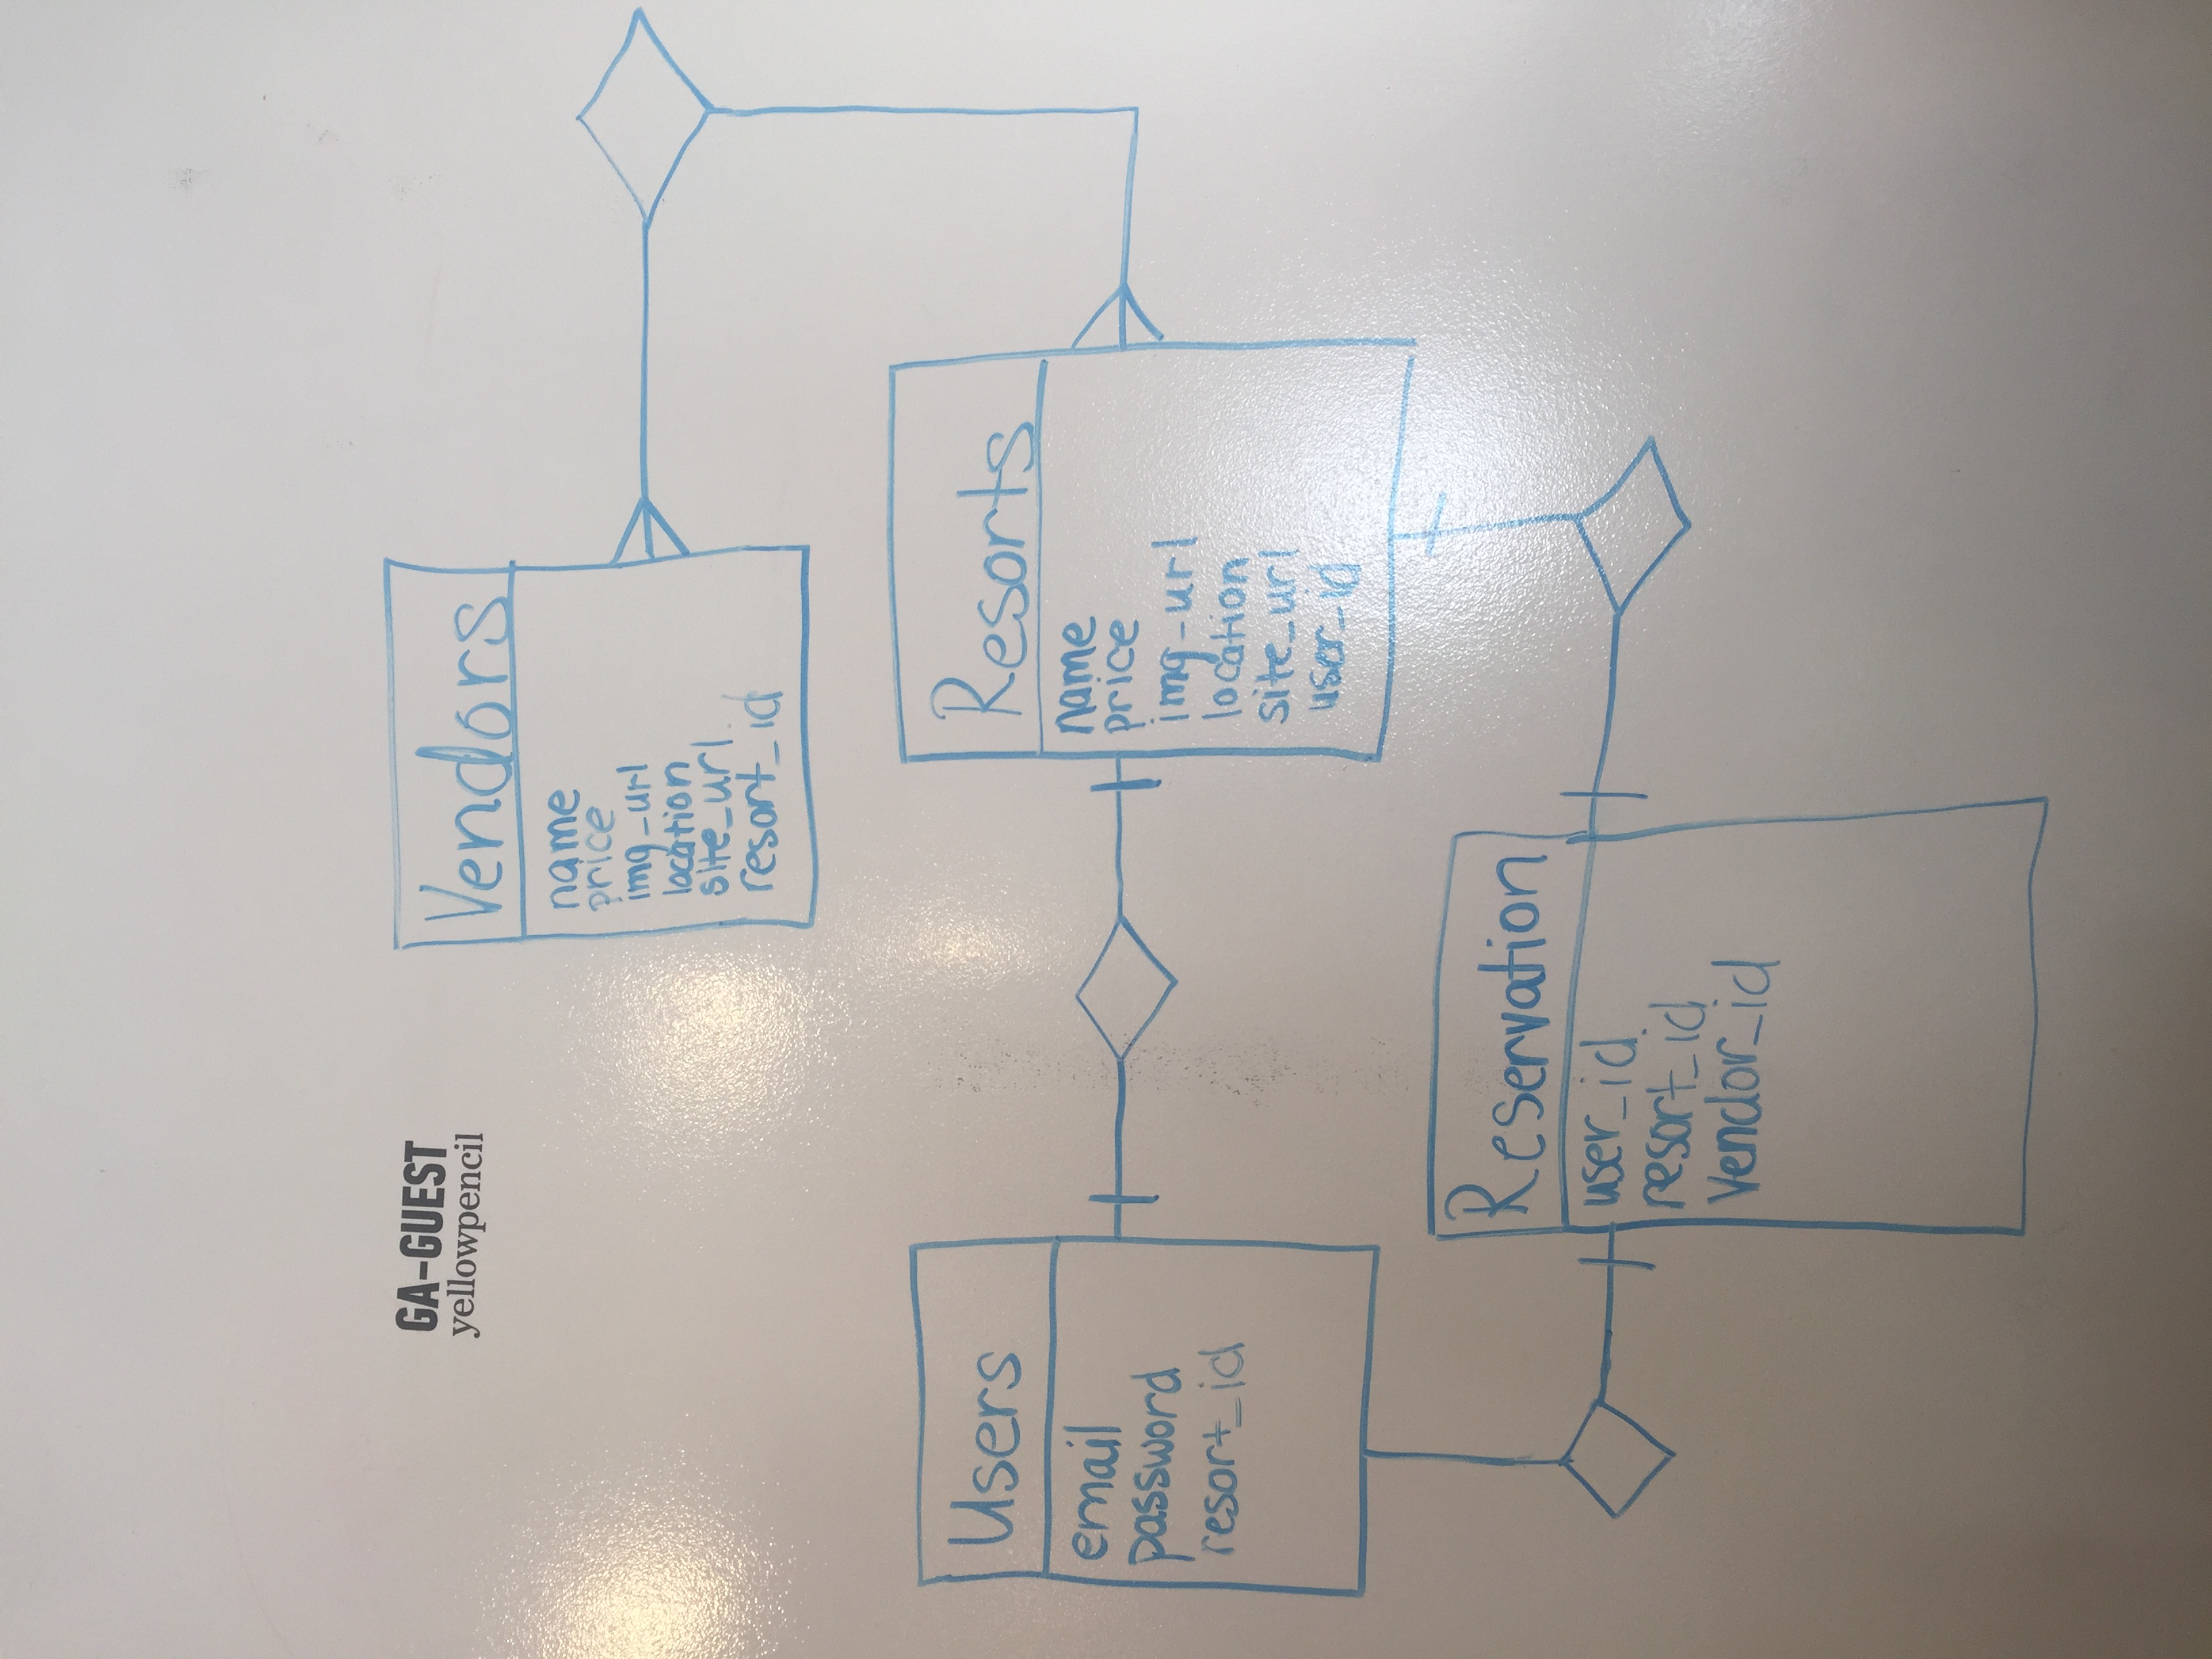 GA-GUEST
yellowpencil
Vendors
name
price
img-url
location
site_url
resort_id
Users
email
password
resort_id
Resorts
name
price
img-url
location
site_url
user_id
Reservation
user_id
resort_id
Vendor_id